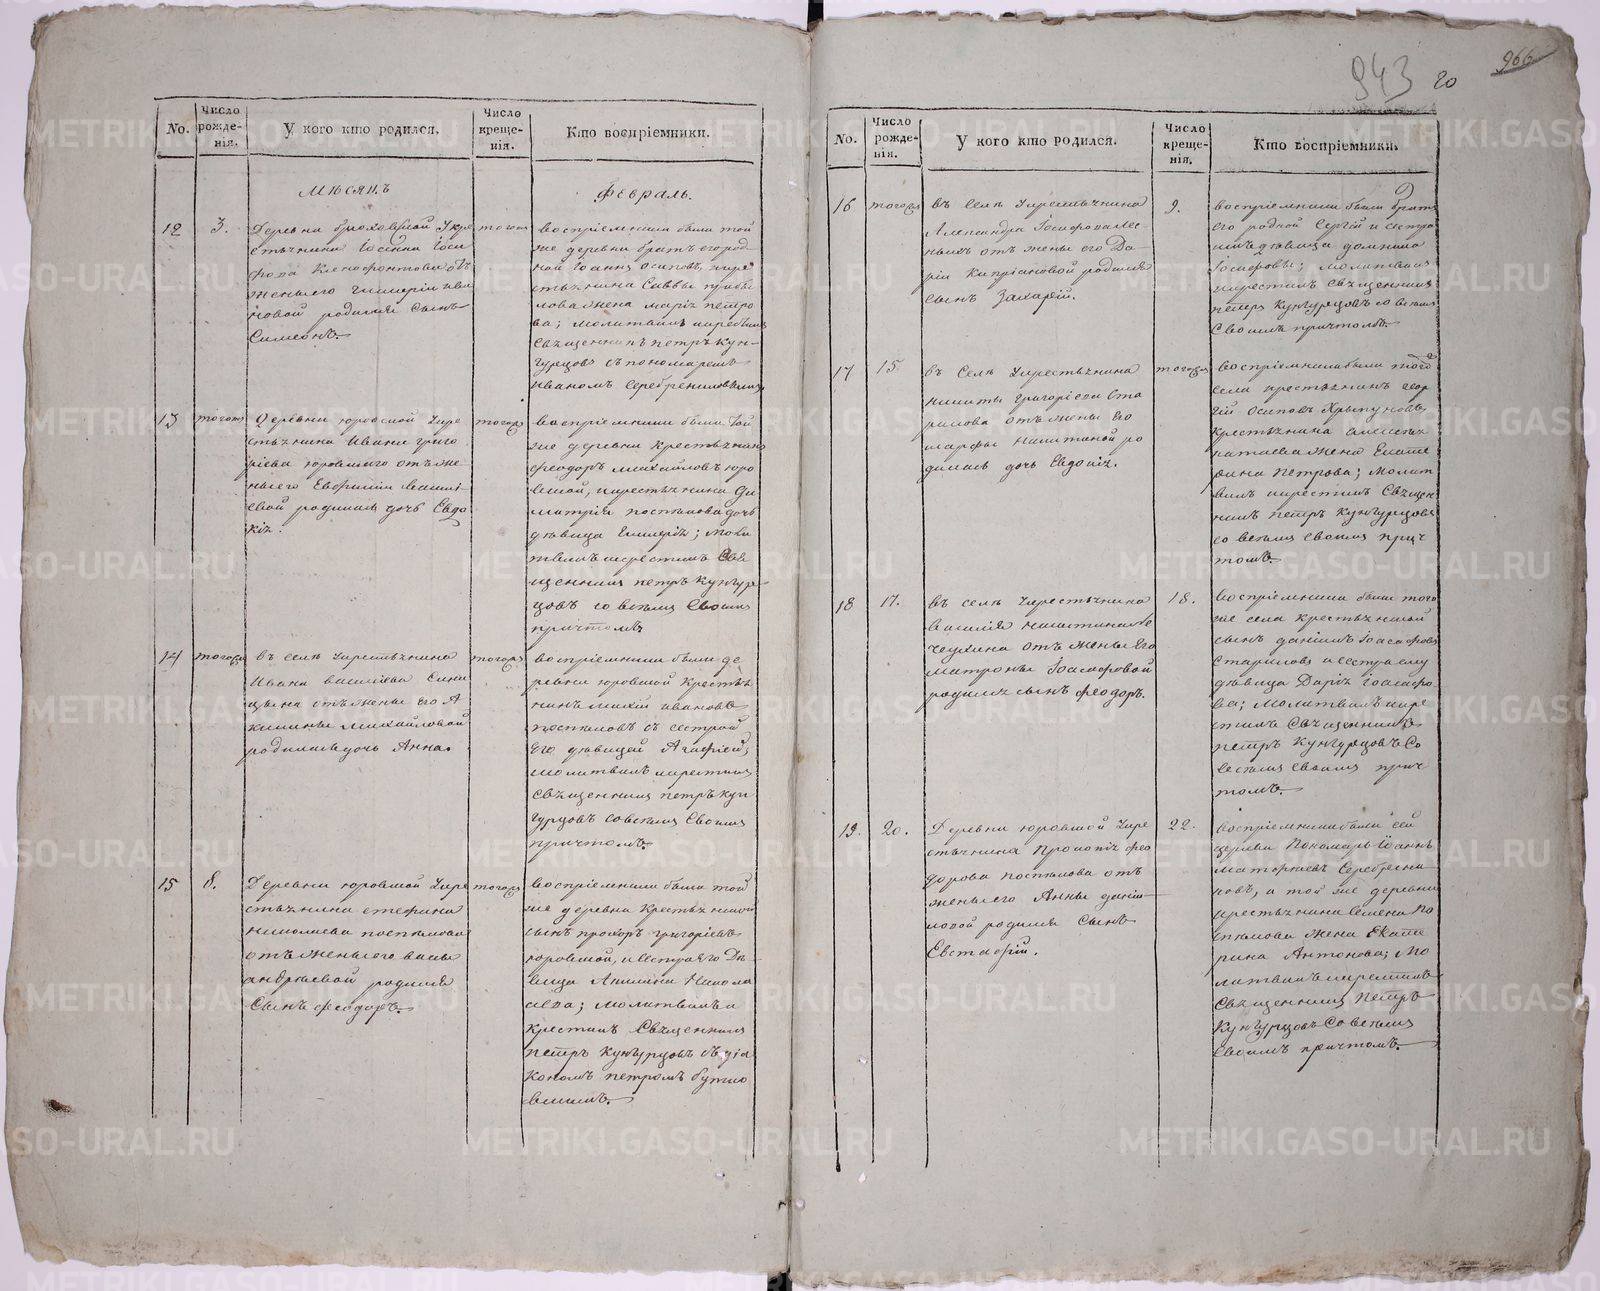 943
20
966
No.
Число рожде-нія.
У кого кто родился.
Число креще-нія.
Кто воспріемники.
Мѣсяцъ
Февраль.
12
3.
Деревни
Іосифа
женыего
родился сынъ
Симеонъ.
тогожъ
воспріемники были той
же деревни братъ его род
ной Іоаннъ Осиповъ, кре
стьянина Саввы
жена Марія Петро
ва; молитвилъ икрестилъ
Священникъ Петръ Кун-
гурцовъ съ пономаремъ
Иваномъ Серебрениковымъ
13
тогожъ
Деревни Юровской кре
стьянина Ивана Григо
рьева Юровскаго отъ же
ныего Евфиміи Василі
евой родилась дочь Евдо
кія.
тогожъ
воспріемники были той
же деревни крестьянинъ
Феодоръ Михайловъ Юро
вской, икрестьянина Ди
митрія Поспѣлова дочь
дѣвица; моли
твилъ икрестилъ Свя
щенникъ Петръ Кунгур-
цовъ со всѣмъ своимъ
причтомъ
14
тогожъ
въ селѣ Укрестьянина
Ивана Васильева Сини
цына отъ жены его А
килины Михайловой
родилась дочь Анна.
тогожъ
воспріемники были де
ревни Юровской крестья
нинъ Ивановъ
Поспѣловъ съ сестрой
его дѣвицей Агафіей;
молитвилъ икрестилъ
Священникъ Петръ Кун
гурцовъ совсѣмъ своимъ
причтомъ.
15
8.
Деревни Юровской Укре
стьянина Стефана
Николаева Поспѣлова
отъ женыего
Андреевой родился
Сынъ Феодоръ.
тогожъ
воспріемники были той
же деревни крестьянской
сынъ Прохоръ Григорьевъ
Юровской, исестраего Дѣ
вица Акилина Никола
ева; молитвилъ и
крестилъ Священникъ
Петръ Кунгурцовъ съ діа
кономъ Петромъ
No.
Число рожде-нія.
У кого кто родился.
Число креще-нія.
Кто воспріемники.
16
тогожъ
въ селѣ Укрестьянина
Александра Іосифова
отъ жены его Да
ріи Кипріановой родился
сынъ Захарій.
9.
воспріемники были братъ
его родной Сергій и сестра
дѣвица Домника
Іосифовы; молитвилъ
икрестилъ Священникъ
Петръ Кунгурцовъ со всѣмъ
своимъ причтомъ.
17
15.
въ Селѣ Укрестьянина
Никиты Григорьева Ста
рикова отъ жены его
Марфы Никитиной ро
дилась дочь Евдокія.
тогожъ
воспріемники были тогоже
села крестьянинъ Геор
гій Осиповъ Хрыпуновъ,
крестьянина Алексѣя
жена Екате
рина Петрова; молит
вилъ икрестилъ Священ
никъ Петръ Кунгурцовъ
со всѣмъ своимъ прич
томъ.
18
17.
въ селѣ Укрестьянина
Василія Никитина
отъ жены его
Матроны Іоасафовой
родился сынъ Феодоръ.
18.
воспріемники были того
же села крестьянской
сынъ Даніилъ Іоасафовъ
Стариковъ исестра ему
дѣвица Дарія Іоасафо
ва; молитвилъ икре
стилъ Священникъ
Петръ Кунгурцовъ со
всѣмъ своимъ прич
томъ.
19.
20.
Деревни Юровской Укре
стьянина Прокопія Фео
дорова Поспѣлова отъ
женыего Анны Даніи
ловой родился Сынъ
Евстафій.
22.
воспріемники были сей
церкви Пономарь Іоаннъ
Серебрени
ковъ, а той же деревни
крестьянина Семена По
спѣлова жена Екате
рина Антонова; мо
литвилъ икрестилъ
Священникъ Петръ
Кунгурцовъ Со всѣмъ
своимъ причтомъ.
METRIKI.GASO-URAL.RU